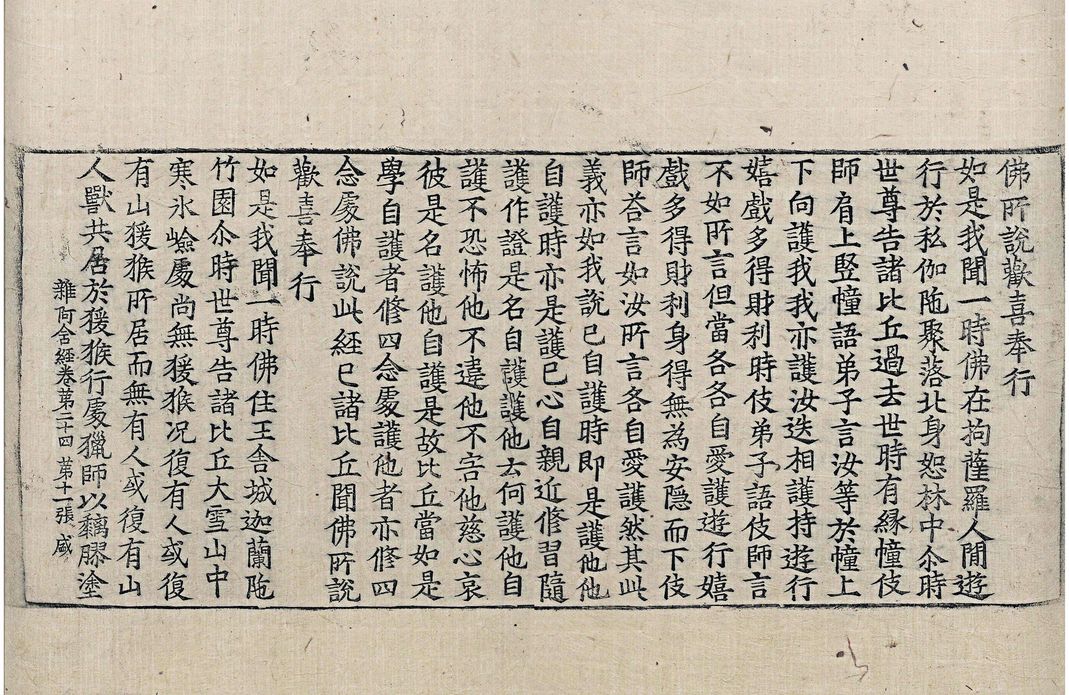 佛所說歡喜奉行
如是我聞一時佛在拘薩羅人間遊
行於私伽陁聚落北身恕林中尒時
世尊告諸比丘過去世時有緣幢伎
師肩上竪幢語弟子言汝等於幢上
下向護我我亦護汝迭相護持遊行
嬉戲多得財利時伎弟子語伎師言
不如所言但當各各自愛護遊行嬉
戲多得財利身得無為安隱而下伎
師荅言如汝所言各自愛護然其此
義亦如我說已自護時即是護他他
自護時亦是護已心自親近修習隨
護作證是名自護護他云何護他自
護不恐怖他不違他不害他慈心哀
彼是名護他自護是故比丘當如是
學自護者修四念處護他者亦修四
念處佛說此經已諸比丘聞佛所說
歡喜奉行
如是我聞一時佛住王舎城迦蘭陁
竹園尒時世尊告諸比丘大雪山中
寒氷嶮處尚無猨猴况復有人或復
有山猨猴所居而無有人或復有山
人獸共居於猨猴行處獵師以黐膠塗
雜阿含經卷第二十四 第十一張 咸